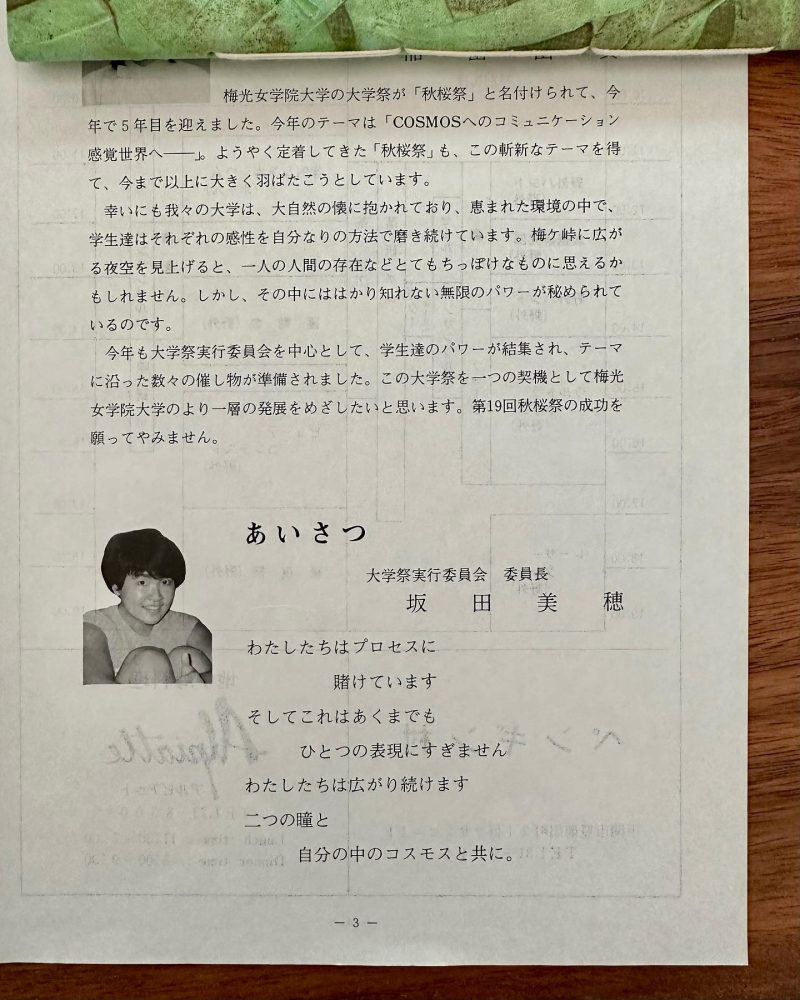 梅光女学院大学の大学祭が「秋桜祭」と名付けられて、今
年で5年目を迎えました。今年のテーマは「COSMOSへのコミュニケーション
感覚世界へ——」。ようやく定着してきた「秋桜祭」も、この斬新なテーマを得
て、今まで以上に大きく羽ばたこうとしています。
幸いにも我々の大学は、大自然の懐に抱かれており、恵まれた環境の中で、
学生達はそれぞれの感性を自分なりの方法で磨き続けています。梅ケ峠に広が
る夜空を見上げると、一人の人間の存在などとてもちっぽけなものに思えるか
もしれません。しかし、その中にははかり知れない無限のパワーが秘められて
いるのです。
今年も大学祭実行委員会を中心として、学生達のパワーが結集され、テーマ
に沿った数々の催し物が準備されました。この大学祭を一つの契機として梅光
女学院大学のより一層の発展をめざしたいと思います。第19回秋桜祭の成功を
願ってやみません。
あいさつ
大学祭実行委員会 委員長
坂田美穂
わたしたちはプロセスに
賭けています
そしてこれはあくまでも
ひとつの表現にすぎません
わたしたちは広がり続けます
二つの瞳と
自分の中のコスモスと共に。
— 3 —